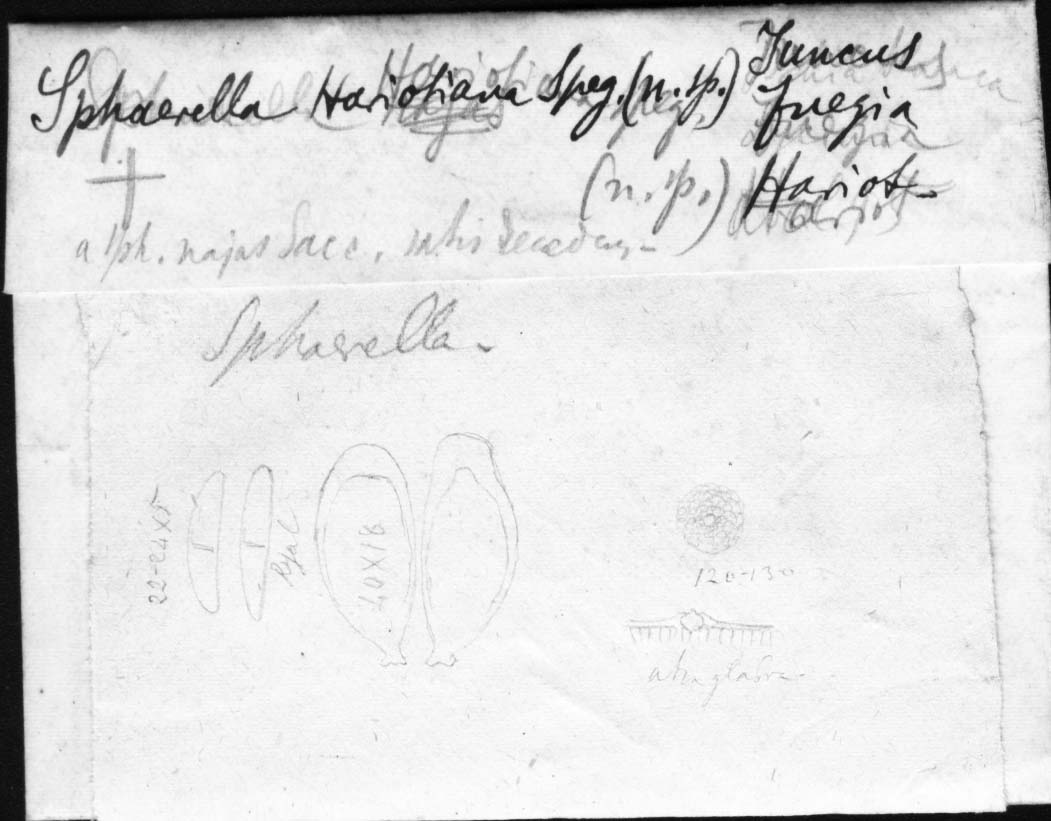 Sphaerella Hariotiana Speg. (n. sp.) Juncus
Fuegia
(n. sp.) Hariot
a Sph. najas Sacc.
Sphaerella.
22-24x5
Hyal
40X18
120-130
atra glabra